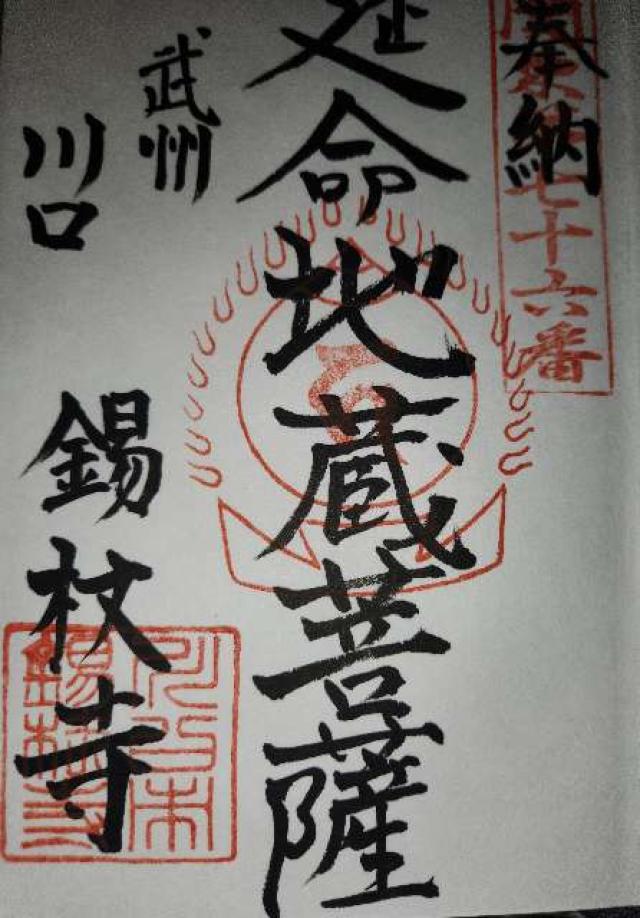 奉納
七十六番
延命地蔵菩薩
武州
川口
錫杖寺